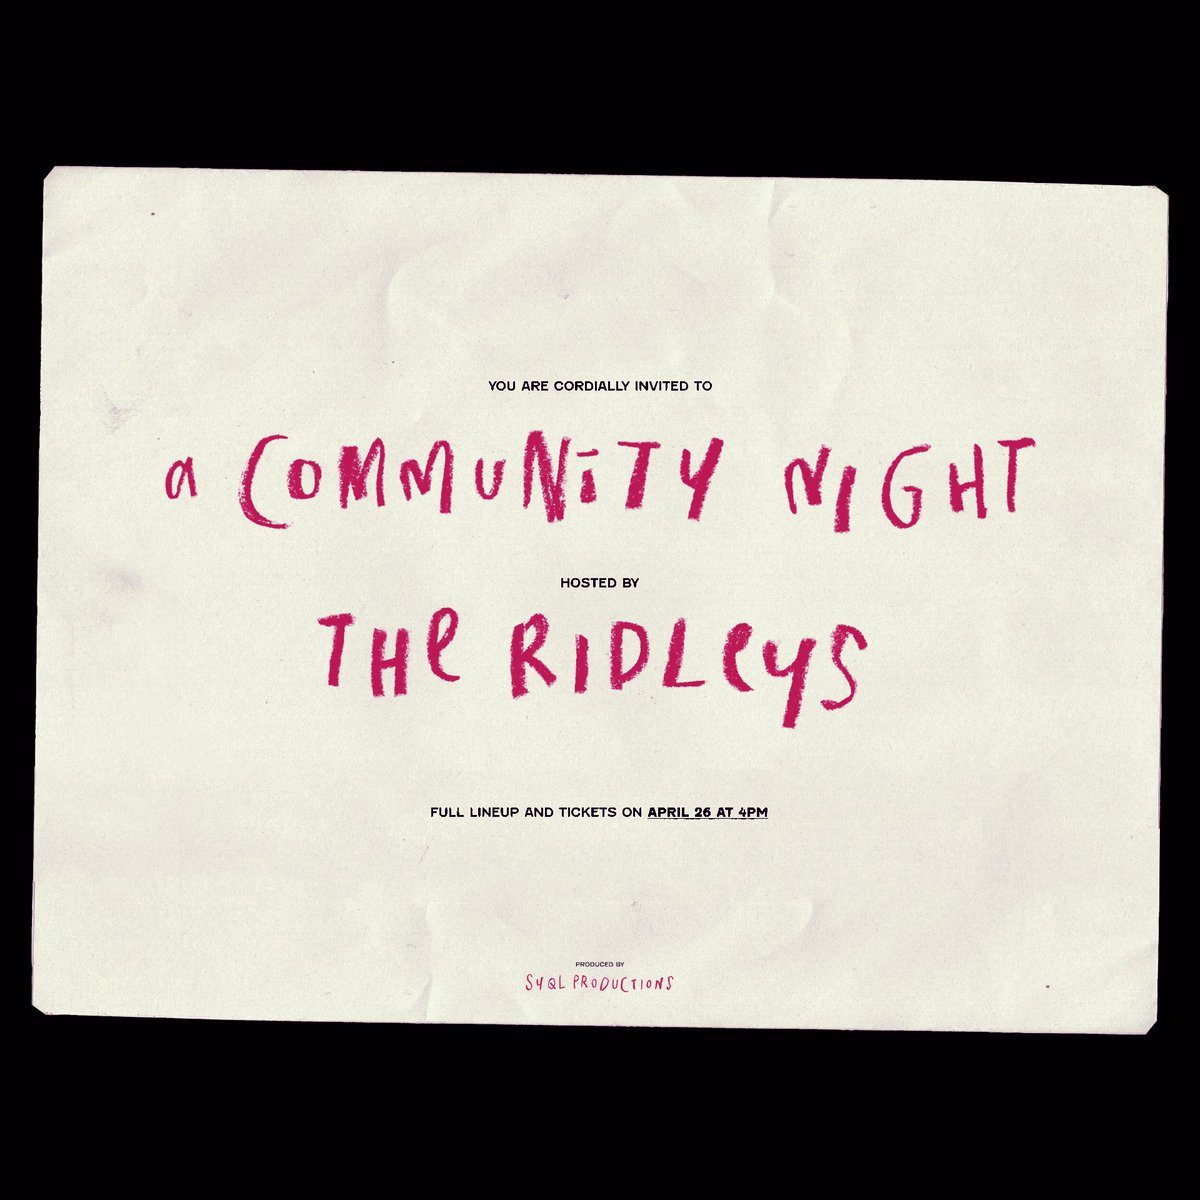 YOU ARE CORDIALLY INVITED TO
a COMMUNITY NIGHT
HOSTED BY
THe RIDLeYS
FULL LINEUP AND TICKETS ON APRIL 26 AT 4PM
PRODUCED BY
S4QL PRODUCTIONS